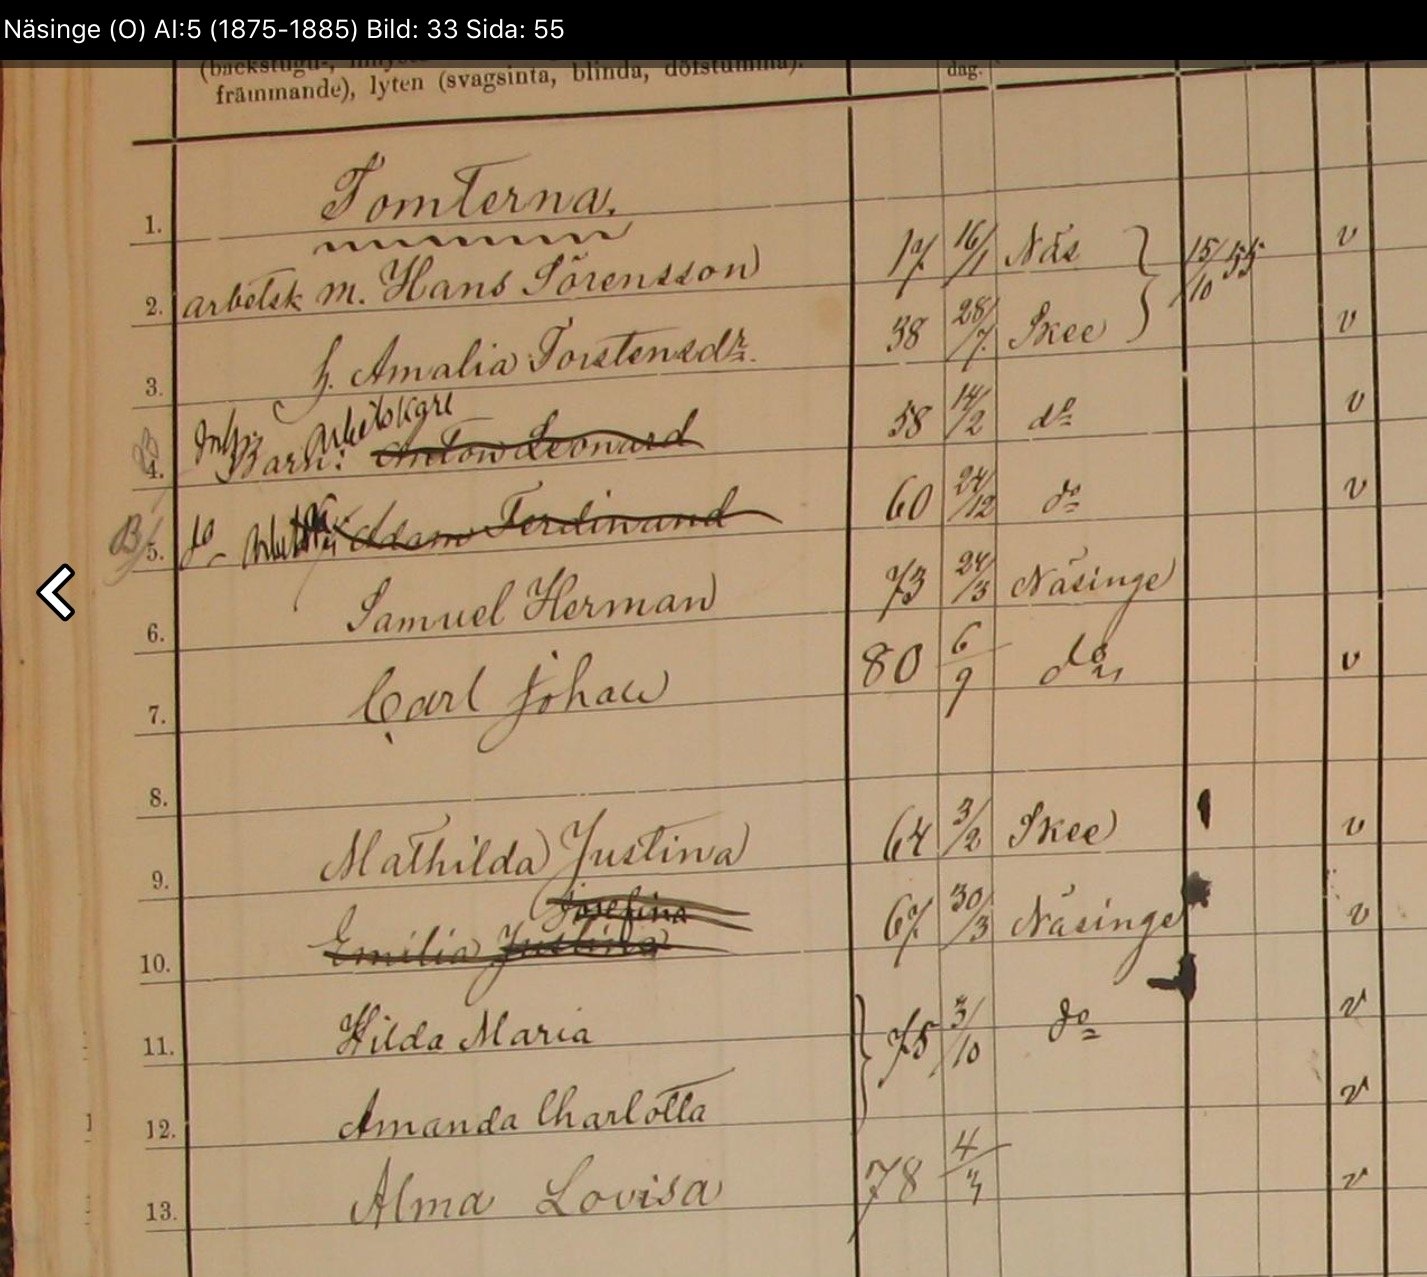 Näsinge (O) AI:5 (1875-1885) Bild: 33 Sida: 55
(backstugu-, döfstumma). dag.
främmande), lyten (svagsinta, blinda,
1. Tomterna.
2. arbetsk m. Hans Sörensson 17 16/1 Näs } 15/10 55 v
3. h. Amalia Torstensdr. 38 28/7 Skee v
arbetskarl
4. Barn: Anton Leonard 58 14/2 do v
5. do Adam Ferdinand 60 24/12 do v
6. Samuel Herman 73 24/3 Näsinge
7. Carl Johan 80 6/9 do v
8.
9. Mathilda Justina 64 3/2 Skee v
Josefina
10. Emilia Justina 67 30/3 Näsinge v
11. Hilda Maria } 75 3/10 do v
12. Amanda Charlotta v
13. Alma Lovisa 78 v